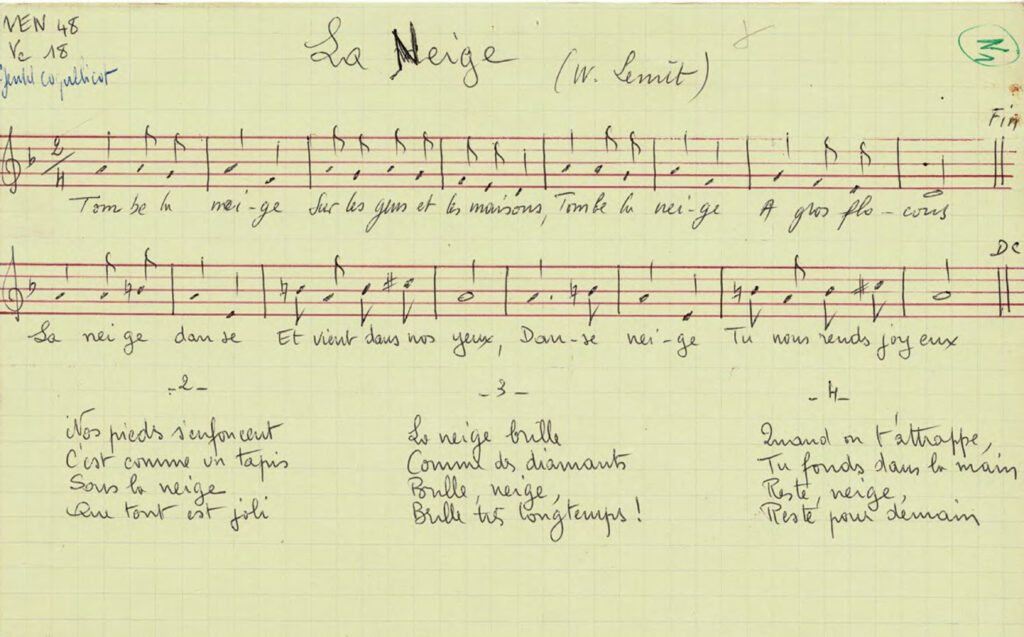 MEN 48
Vc 18
Gentil coquelicot
La Neige
(W. Lemit)
Fin
2
4
Tom be la nei-ge Sur les gens et les maisons, Tombe la nei-ge A gros flo-cons
DC
La nei ge dan se Et vient dans nos yeux, Dan-se nei-ge Tu nous rends joy eux
-2-
Nos pieds s'enfoncent
C'est comme un tapis
Sous la neige
Que tout est joli
-3-
La neige brille
Comme des diamants
Brille, neige,
Brille très longtemps !
-4-
Quand on t'attrappe,
Tu fonds dans la main
Reste, neige,
Reste pour demain